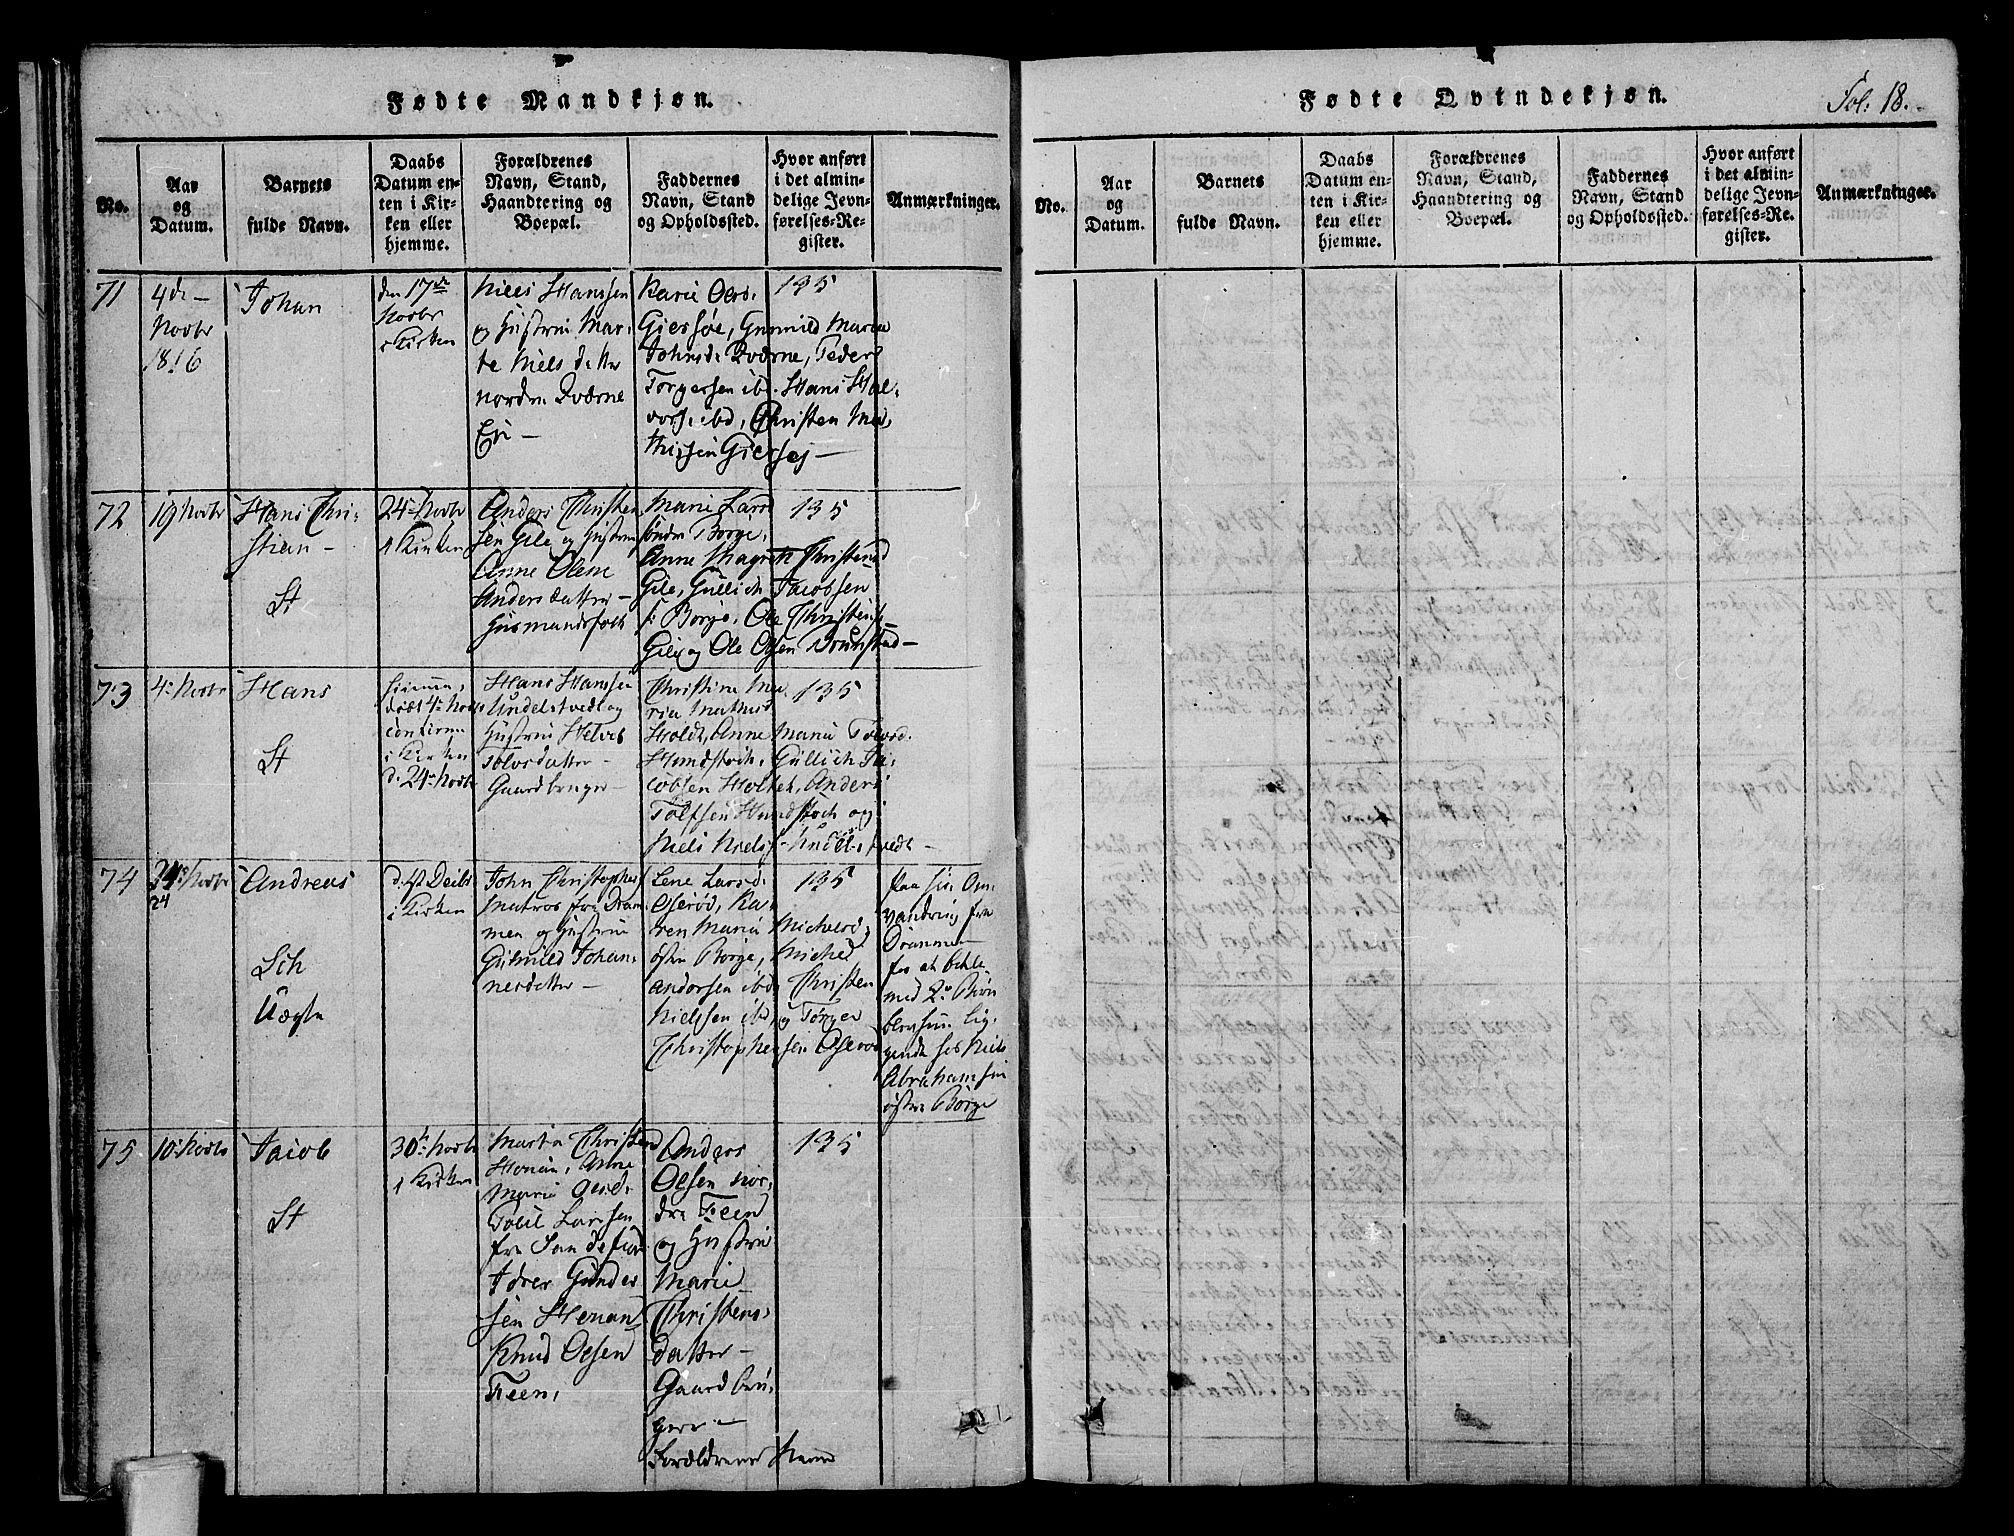 Fødte Mandkjøn.
No.
Aar
og
Datum.
Barnets
fulde Navn.
Daabs
Datum en-
ten i Kir-
ken eller
hjemme.
Forældrenes
Navn, Stand,
Haandtering og
Boepæl.
Faddernes
Navn, Stand
og Opholdssted.
Hvor anført
i det almin-
delige Jevn-
førelses-Re-
gister.
Anmærkninger.
71
4de
Novbr
1816
Johan
den 17de
Novbr
i Kirken
Niels Hanssen
og Hustrue Mar-
te Niels datter
nordre Qværne
Eri
Karie Oels:
Giersøe, Gunnild Marie
Johnsd. Qværne, Peder
Torgersen ibd. Hans Hal-
vors. ibd, Christen Ma-
thissen Giersøe
135
72
19 Novbr
Hans Chri-
stian
St
24de Novbr
i Kirken
Anders Christen
sen Gile og Hustrue
Anne Olene
Andersdatter
Huusmandsfolk
Marie Larsd
søndre Borge,
Anne Magreth Christensd
Gile, Gullich Jacobsen
s: Borge, Ole Christens
Gile og Ole Olsen
135
73
4de Novbr
Hans
St
hiemme
døbt 4de Novbr
confirm
i Kirken
d. 24de Novbr
Hans Hanssen
Undelstvedt og
Hustrue Helvig
Tolvsdatter
Gaardbruger
Christine Ma-
ria Mathisd
Holdt, Anne Maria Tolvsd.
Hundstoch, Gullich Ja-
cobsen Holtet, Anders
Tolfsen Hundstoch og
Niels Niels. Undelstvedt
135
74
24de Novbr
24
Andreas
Sch
Uægte
i Kirken
John Christophers
Matros fra Dram-
men og Hustrue
Gunnild Johan-
nesdatter
Lene Larsd.
Oserød, Ka-
ren Maria Michelsd
østre Borge, Michel
Andersen ibd, Christen
Nielssen ibd, og Torger
Christophersen Oserød
135
Paa sin Om-
vandring fra
Drammen
for at betle
med 2de Børn
lig-
gende hos Niels
Abrahamsen
østre Borge
75
10de Novbr
Jacob
St
30te Novbr
i Kirken
Marta Christensd
Henan, Anne
Maria Olesd.
Poul Larssen
fra Sandefior
Idrer Gunder
sen Henan,
Knud Oelsen
Feen,
Anders
Oelsen nor-
dre Feen
og Hustrue
Marie
Christens-
datter
Gaardbru-
gere
Forældrenes Navn
135
Fødte Qvindekjøn.
Fol: 18.
No.
Aar
og
Datum.
Barnets
fulde Navn.
Daabs
Datum en-
ten i Kir-
ken eller
hjemme.
Forældrenes
Navn, Stand,
Haandtering og
Boepæl.
Faddernes
Navn, Stand
og Opholdssted.
Hvor anført
i det almin-
delige Jevn-
førelses-Re-
gister.
Anmærkninger.